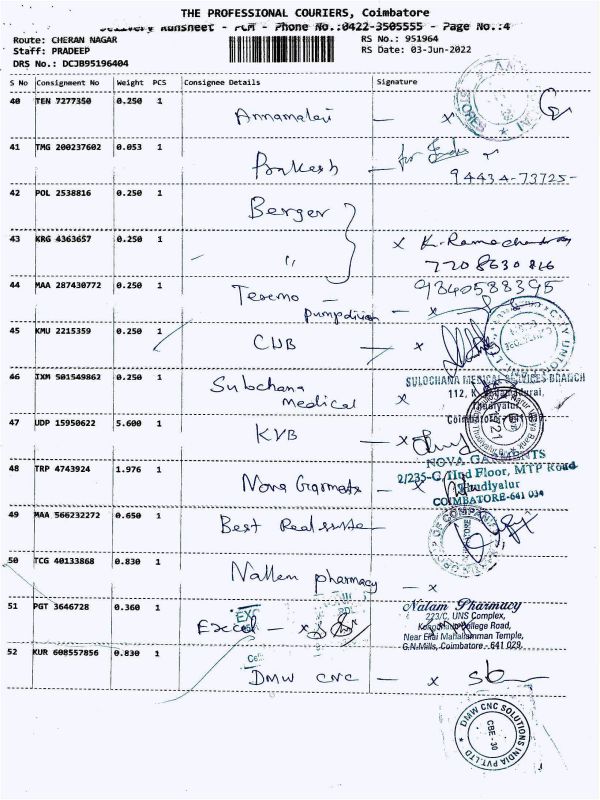 THE PROFESSIONAL COURIERS, Coimbatore
Delivery Runsheet - PCM - Phone No.:0422-3505555 - Page No.:4
Route: CHERAN NAGAR
RS No.: 951964
Staff: PRADEEP
RS Date: 03-Jun-2022
DRS No.: DCJB95196404
S No Consignment No Weight PCS Consignee Details Signature
40 TEN 7277350 0.250 1 Annamalai - x
STORES
41 TMG 200237602 0.053 1 Prakash - for
94434-73725-
42 POL 2538816 0.250 1 Berger
43 KRG 4363657 0.250 1 " x K. Ramachandran
7708630816
44 MAA 287430772 0.250 1 - 9340588395
pumpdivision - x
45 KMU 2215359 0.250 1 CUB - x
CITY UNION
46 IXM 501549862 0.250 1 Sulochana medical x
SULOCHANA MEDICAL SERVICES BRANCH
112, K.
Thudiyalur,
Coimbatore
47 UDP 15950622 5.600 1 KVB - x
48 TRP 4743924 1.976 1 Nova Garments - x
NOVA GARMENTS
2/235-G, IInd Floor, MTP Road
Thudiyalur
COIMBATORE-641 034
49 MAA 566232272 0.650 1 Best Real
50 TCG 40133868 0.830 1 Nallam pharmacy - x
51 PGT 3646728 0.360 1 Excel - x
EXC
Nalam Pharmacy
223/C, UNS Complex,
College Road,
Near Ellai Mahaliamman Temple,
G.N.Mills, Coimbatore - 641 029.
52 KUR 608557856 0.830 1 DMW CNC - x
DMW CNC SOLUTIONS INDIA PVT.LTD
CBE - 30